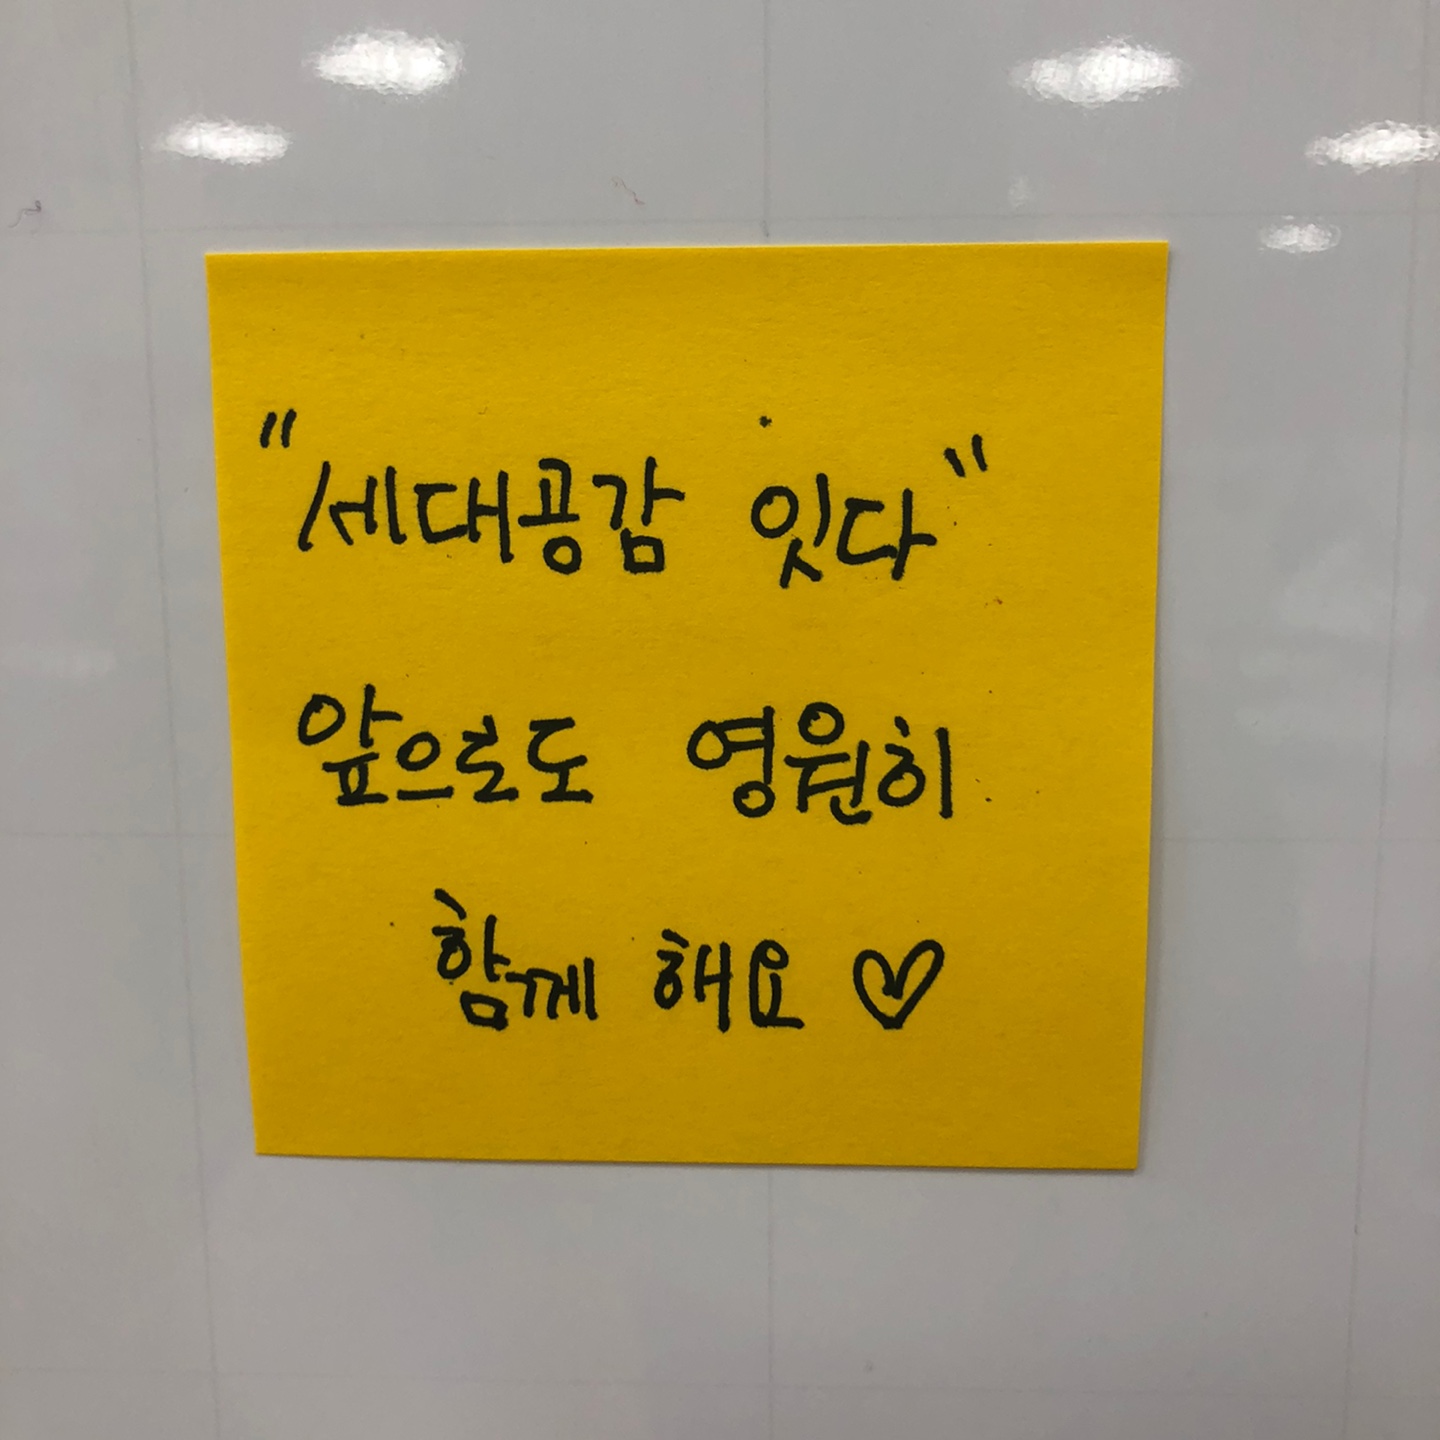 "세대공감 잇다"
앞으로도 영원히
함께 해요 ♡